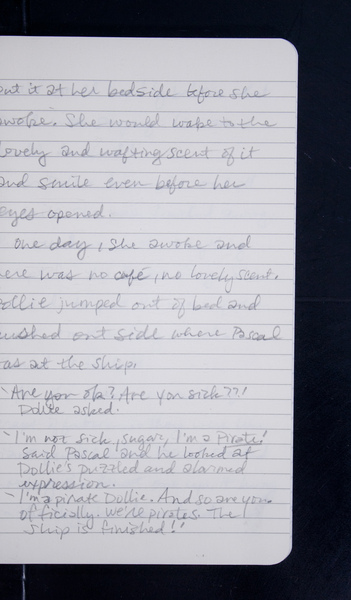 ent it at her bedside before she
awoke. She would wake to the
lovely and wafting scent of it
and smile even before her
eyes opened.
one day, she awoke and
here was no café, no lovely scent.
ollie jumped out of bed and
rushed outside where Pascal
as at the ship.
"Are you ok? Are you sick??!
Dollie asked.
"I'm not sick, sugar, I'm a Pirate!
said Pascal and he looked at
Dollie's puzzled and alarmed
expression.
"I'm a pirate Dollie. And so are you
officially. We're pirates. The
ship is finished!"